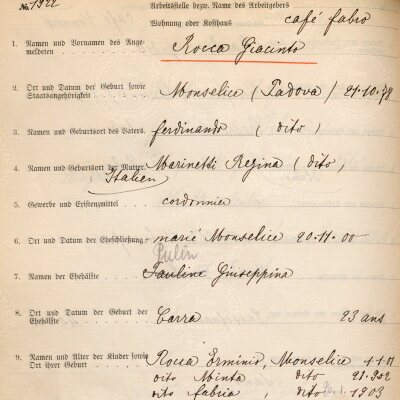 № 1922 Arbeitsstelle bezw. Name des Arbeitgebers
Wohnung oder Kosthaus café fabro
1. Namen und Vornamen des Ange-
meldeten Rocca Giacinto
2. Ort und Datum der Geburt sowie
Staatsangehörigkeit Monselice (Padova) / 21.10.78
3. Namen und Geburtsort des Vaters. ferdinando (dito)
4. Namen und Geburtsort der Mutter. Marinetti Regina (dito,)
Italien
5. Gewerbe und Existenzmittel cordonnier
6. Ort und Datum der Eheschließung marié Monselice 20.11.00
Pulin
7. Namen der Ehehälfte Pauline Giuseppina
8. Ort und Datum der Geburt der
Ehehälfte Carra 23 ans
9. Namen und Alter der Kinder sowie
Ort ihrer Geburt Rocca Erminio, Monselice 1.1.01
dito Minta dito 21.902
dito fabria, dito .1.1903